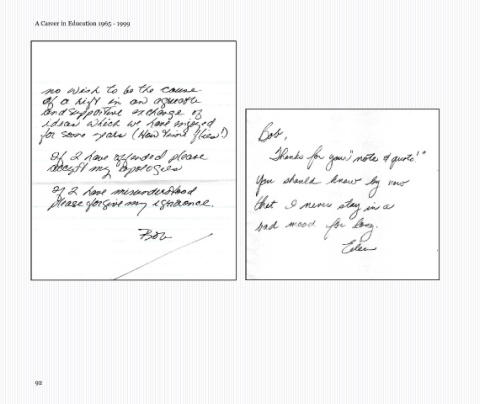 A Career in Education 1965 - 1999
no wish to be the cause
of a rift in an agreeable
and supportive exchange of
ideas which we have enjoyed
for some years (How time flies!)
If I have offended please
accept my apologies
If I have misunderstood
please forgive my ignorance.
Bob
Bob,
Thanks for your "note & quote!"
You should know by now
that I never stay in a
bad mood for long.
92